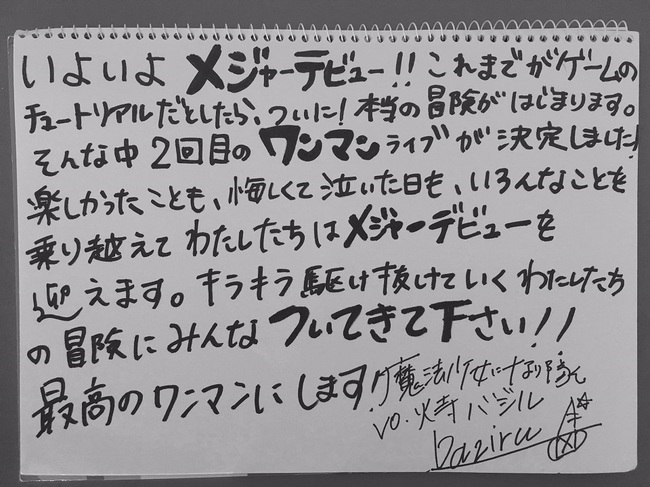 いよいよ メジャーデビュー!! これまでがゲームの
チュートリアルだとしたら、ついに!本当の冒険がはじまります。
そんな中 2回目の ワンマンライブが決定しました!
楽しかったことも、悔しくて泣いた日も、いろんなことを
乗り越えて わたしたちは メジャーデビューを
迎えます。キラキラ駆け抜けていく わたしたち
の冒険にみんな ついてきて下さい!!
最高のワンマンにします!!
魔法少女になり隊
vo.火寺バジル
baziru